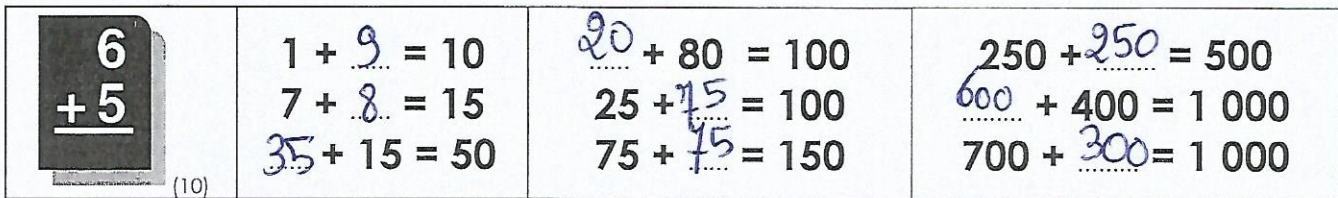 6
+ 5
(10)
1 + 9 = 10
7 + 8 = 15
35 + 15 = 50
20 + 80 = 100
25 + 75 = 100
75 + 75 = 150
250 + 250 = 500
600 + 400 = 1 000
700 + 300 = 1 000